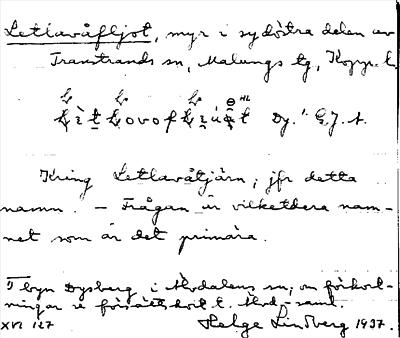 Letlavåfljot, myr i sydöstra delen av
Transtrands sn, Malungs tg, Kopp. l.
Dy.¹ G.J. t.
Kring Letlavåtjärn; jfr detta
namn. – Frågan är vilketdera nam-
net som är det primära.
I byn Dysberg i Älvdalens sn; om förkort-
ningar se försättskort t. Älvd.-saml.
XVI 127 Helge Lindberg 1937.